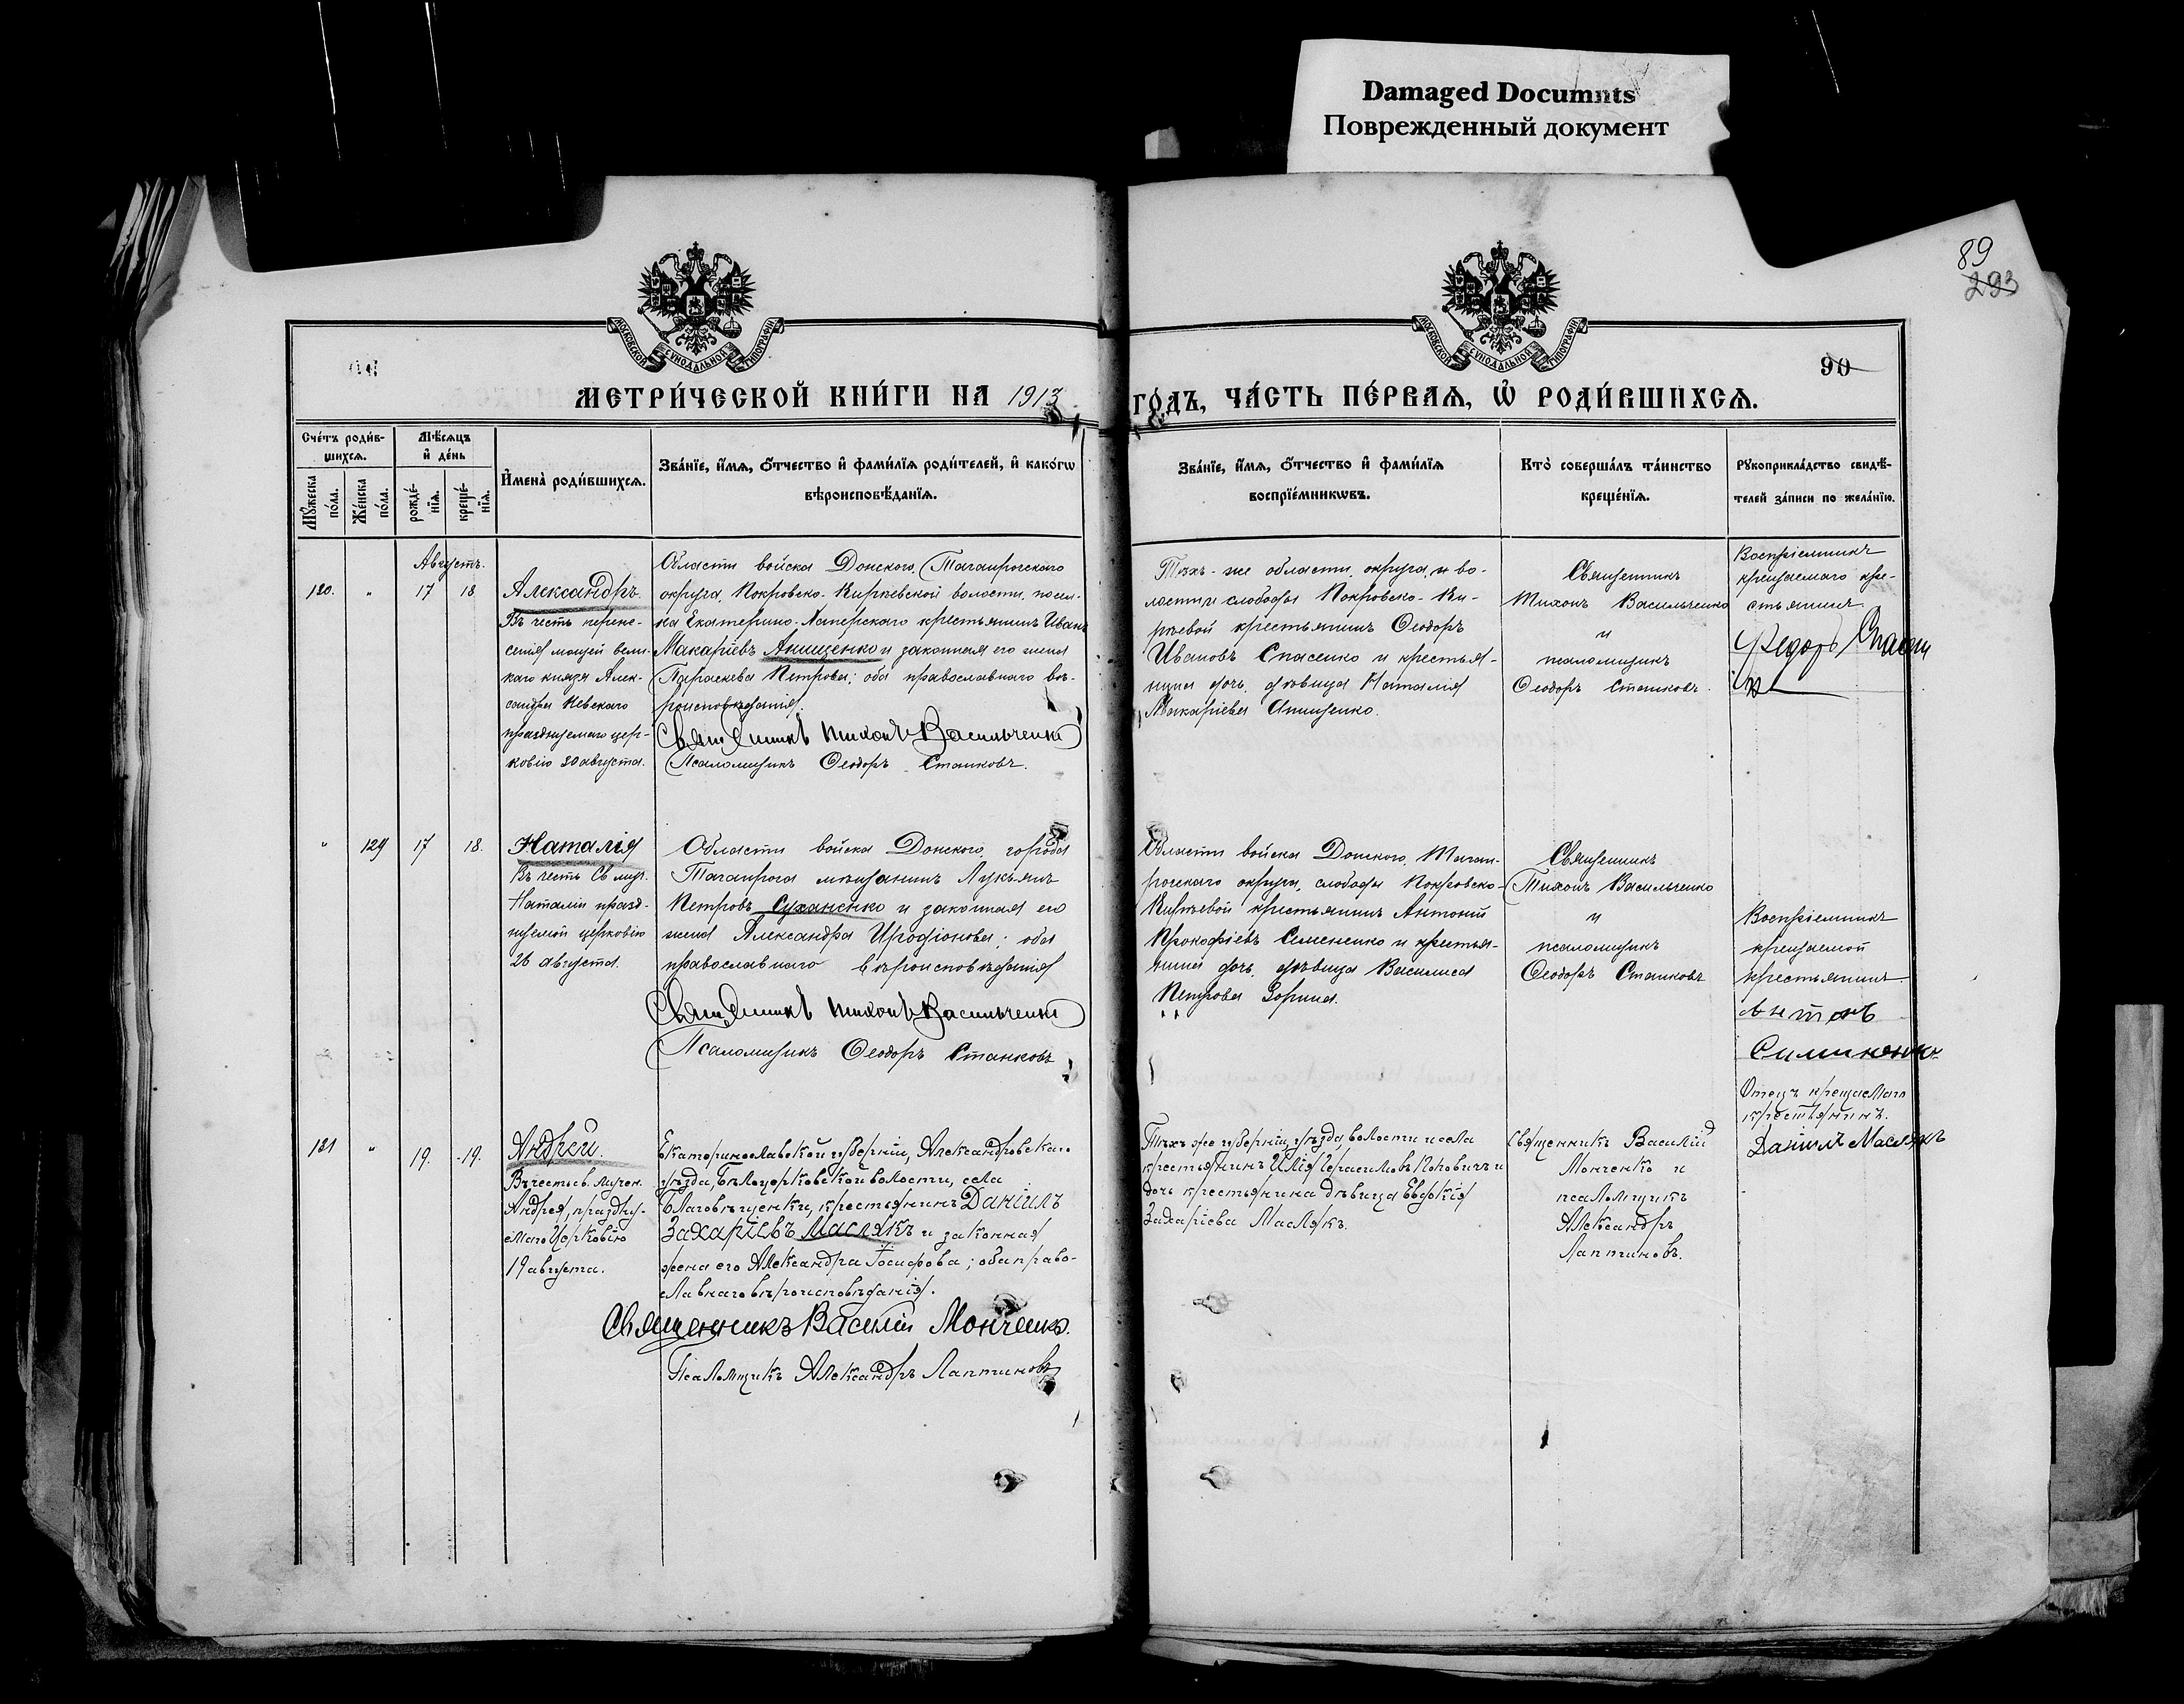 Damaged Documnts
Поврежденный документ
89
293
МОСКОВСКОЙ СУНОДАЛЬНОЙ ТИПОГРАФІИ
МОСКОВСКОЙ СУНОДАЛЬНОЙ ТИПОГРАФІИ
90
МЕТРИ́ЧЕСКОЙ КНИ́ГИ НА 1913
ГО́ДЪ, ЧА́СТЬ ПЕ́РВАЯ, Ѡ҆ РОДИ́ВШИХСЯ.
Сче́тъ роди́в-
шихся.
Мꙋ́жеска по́ла.
Же́нска по́ла.
Мѣ́сяцъ
и҆ де́нь
рожде́-
нїя.
креще́-
нїя.
И҆мена̀ роди́вшихся.
Зва́нїе, и҆́мя, ѻ҆́тчество и҆ фами́лїя роди́телей, и҆ како́гѡ
вѣроисповѣ́данїя.
Зва́нїе, и҆́мя, ѻ҆́тчество и҆ фами́лїя
воспрїе́мникѡвъ.
Кто̀ соверша́лъ та́инство
креще́нїя.
Рꙋкоприкла́дство свидѣ́-
телей за́писи по жела́нїю.
Августъ.
120. " 17 18
Александръ.
Въ честь перене-
сенія мощей вели-
каго князя Алек-
сандра Невскаго
празднуемаго цер-
ковію 30 августа.
Области войска Донского, Таганрогскаго
округа, Покровско-Кирѣевской волости, посел-
ка Екатерино-Хаперскаго крестьянинъ Иванъ
Макаріевъ Анищенко и законная его жена
Параскева Петрова; оба православнаго вѣ-
роисповѣданія.
Священникъ Тихонъ Васильченко
Псаломщикъ Ѳеодоръ Станковъ.
Тѣхъ-же области, округа, и во-
лости слободы Покровско-Ки-
рѣевой крестьянинъ Ѳеодоръ
Ивановъ Спасенко и крестья-
нина дочь, дѣвица Наталія
Макаріева Анищенко.
Священникъ
Тихонъ Васильченко
и
псаломщикъ
Ѳеодоръ Станковъ.
Воспріемникъ
крещаемаго кре-
стьянинъ
Федоръ
" 129 17 18.
Наталія
Въ честь Св. муч.
Наталіи празд-
нуемой церковію
26 августа.
Области войска Донского, города
Таганрога мѣщанинъ Лукьянъ
Петровъ Суханенко и законная его
жена Александра Иродіонова; оба
православнаго вѣроисповѣданія
Священникъ Тихонъ Васильченко
Псаломщикъ Ѳеодоръ Станковъ
Области войска Донского, Таган-
рогскаго округа, слободы Покровско-
Кирѣевой крестьянинъ Антоній
Прокофіевъ Семененко и крестья-
нина дочь, дѣвица Василиса
Петрова Зорина.
Священникъ
Тихонъ Васильченко
и
псаломщикъ
Ѳеодоръ Станковъ
Воспріемникъ
крещаемой
крестьянинъ
Антонъ
Симиненко
121 " 19. 19.
Андрей.
Въ честь св. мучен.
Андрея, праздну-
емаго Церковію
19 августа.
Екатеринославской губерніи, Александровскаго
уѣзда, Бѣлоцерковской волости, села
Благовѣщенки, крестьянинъ Даніилъ
Захаріевъ Маслякъ и законная
жена его Александра Іосифова; оба право-
славнаго вѣроисповѣданія.
Священникъ Василій Монченко.
Псаломщикъ Александръ Лаптиновъ
Тѣхъ же губерніи, уѣзда, волости и села
крестьянинъ Илія Герасимовъ Поповичъ и
дочь крестьянина дѣвица Евфкія
Захаріева Маслякъ.
Священникъ Василій
Монченко и
псаломщикъ
Александръ
Лаптиновъ.
Отецъ крещаемаго
крестьянинъ.
Даніилъ Маслякъ